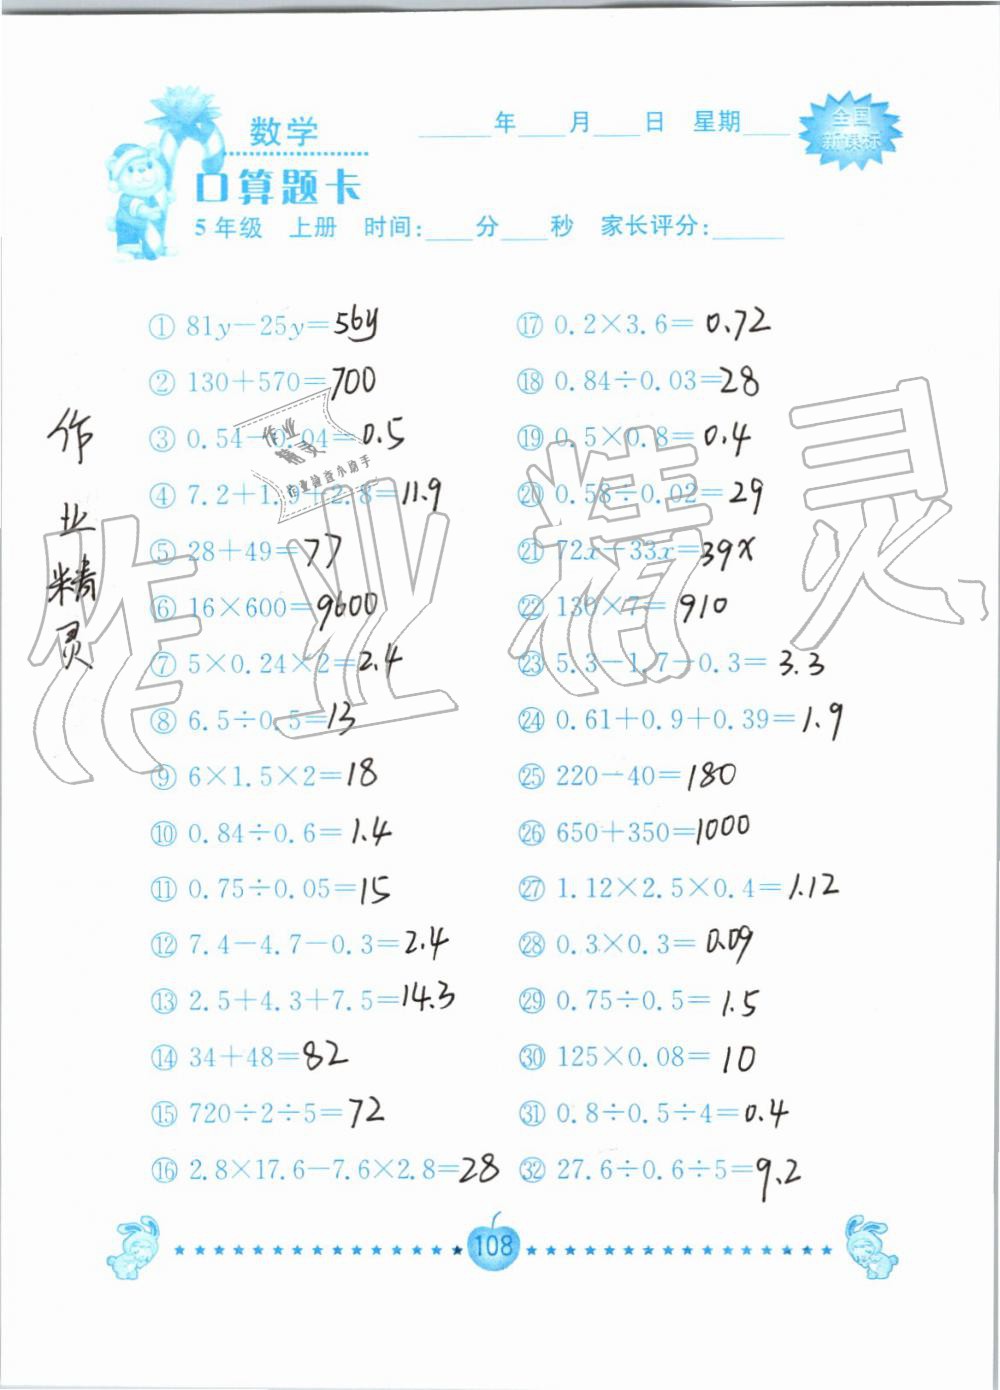 数学
____年____月____日 星期____
全国
新课标
口算题卡
5年级 上册 时间:____分____秒 家长评分:______
① 81y-25y=56y
② 130+570=700
③ 0.54-0.04=0.5
④ 7.2+1.9+2.8=11.9
⑤ 28+49=77
⑥ 16×600=9600
⑦ 5×0.24×2=2.4
⑧ 6.5÷0.5=13
⑨ 6×1.5×2=18
⑩ 0.84÷0.6=1.4
⑪ 0.75÷0.05=15
⑫ 7.4-4.7-0.3=2.4
⑬ 2.5+4.3+7.5=14.3
⑭ 34+48=82
⑮ 720÷2÷5=72
⑯ 2.8×17.6-7.6×2.8=28
⑰ 0.2×3.6=0.72
⑱ 0.84÷0.03=28
⑲ 0.5×0.8=0.4
⑳ 0.58÷0.02=29
㉑ 72x-33x=39x
㉒ 130×7=910
㉓ 5.3-1.7-0.3=3.3
㉔ 0.61+0.9+0.39=1.9
㉕ 220-40=180
㉖ 650+350=1000
㉗ 1.12×2.5×0.4=1.12
㉘ 0.3×0.3=0.09
㉙ 0.75÷0.5=1.5
㉚ 125×0.08=10
㉛ 0.8÷0.5÷4=0.4
㉜ 27.6÷0.6÷5=9.2
作业精灵
作业
精灵
作业检查小助手
作业精灵
108